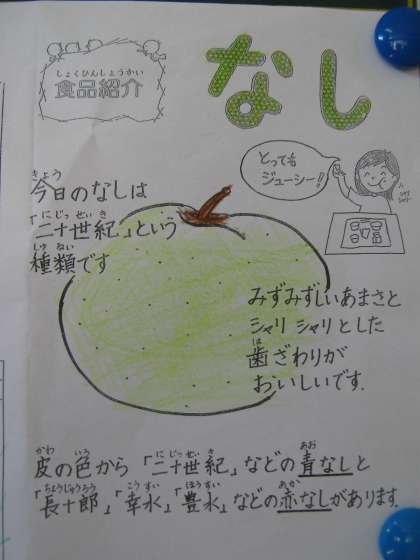 しょくひんしょうかい
食品紹介
なし
とっても
ジューシー!!
きょう
今日のなしは
にじっせいき
「二十世紀」という
しゅるい
種類です
みずみずしいあまさと
シャリ シャリとした
は
歯ざわりが
おいしいです.
かわ いろ にじっせいき あお
皮の色から「二十世紀」などの青なしと
ちょうじゅうろう こうすい ほうすい あか
「長十郎」「幸水」「豊水」などの赤なしがあります.